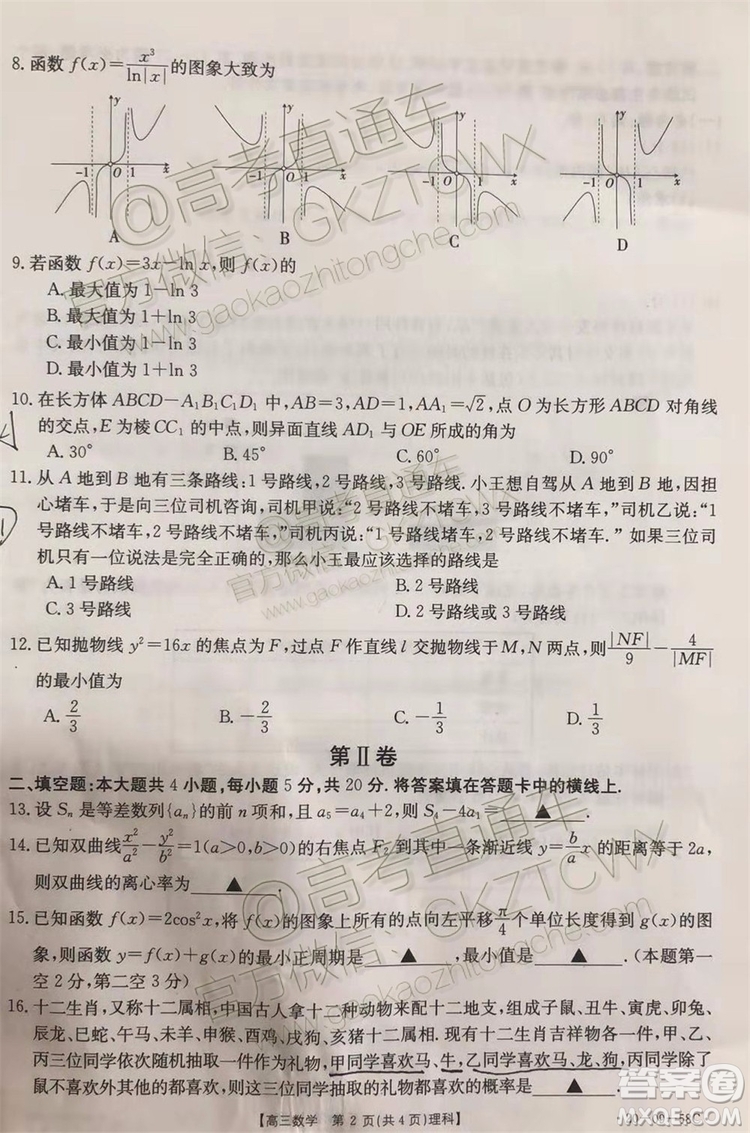 8. 函数 f(x)=x³/ln|x| 的图象大致为
y y y y
-1 O 1 x -1 O 1 x -1 O 1 x -1 O 1 x
A B C D
9. 若函数 f(x)=3x-ln x,则 f(x)的
A. 最大值为 1-ln 3
B. 最大值为 1+ln 3
C. 最小值为 1-ln 3
D. 最小值为 1+ln 3
10. 在长方体 ABCD-A₁B₁C₁D₁ 中,AB=3,AD=1,AA₁=√2,点 O 为长方形 ABCD 对角线
的交点,E 为棱 CC₁ 的中点,则异面直线 AD₁ 与 OE 所成的角为
A. 30° B. 45° C. 60° D. 90°
11. 从 A 地到 B 地有三条路线:1 号路线,2 号路线,3 号路线. 小王想自驾从 A 地到 B 地,因担
心堵车,于是向三位司机咨询,司机甲说:“2 号路线不堵车,3 号路线不堵车,”司机乙说:“1
号路线不堵车,2 号路线不堵车,”司机丙说:“1 号路线堵车,2 号路线不堵车.”如果三位司
机只有一位说法是完全正确的,那么小王最应该选择的路线是
A. 1 号路线 B. 2 号路线
C. 3 号路线 D. 2 号路线或 3 号路线
12. 已知抛物线 y²=16x 的焦点为 F,过点 F 作直线 l 交抛物线于 M,N 两点,则 |NF|/9 - 4/|MF|
的最小值为
A. 2/3 B. -2/3 C. -1/3 D. 1/3
第Ⅱ卷
二、填空题:本大题共 4 小题,每小题 5 分,共 20 分. 将答案填在答题卡中的横线上.
13. 设 Sₙ 是等差数列{aₙ}的前 n 项和,且 a₅=a₄+2,则 S₄-4a₁= ▲ .
14. 已知双曲线 x²/a² - y²/b² =1(a>0,b>0)的右焦点 F₂ 到其中一条渐近线 y=b/a x 的距离等于 2a,
则双曲线的离心率为 ▲ .
15. 已知函数 f(x)=2cos²x,将 f(x)的图象上所有的点向左平移 π/4 个单位长度得到 g(x)的图
象,则函数 y=f(x)+g(x)的最小正周期是 ▲ ,最小值是 ▲ . (本题第一
空 2 分,第二空 3 分)
16. 十二生肖,又称十二属相,中国古人拿十二种动物来配十二地支,组成子鼠、丑牛、寅虎、卯兔、
辰龙、巳蛇、午马、未羊、申猴、酉鸡、戌狗、亥猪十二属相. 现有十二生肖吉祥物各一件,甲、乙、
丙三位同学依次随机抽取一件作为礼物,甲同学喜欢马、牛,乙同学喜欢马、龙、狗,丙同学除了
鼠不喜欢外其他的都喜欢,则这三位同学抽取的礼物都喜欢的概率是 ▲ .
【高三数学 第 2 页(共 4 页)理科】
@高考直通车
官方微信: GKZTCWX
www.gaokaozhitongche.com
@高考直通车
官方微信: GKZTCWX
www.gaokaozhitongche.com
答案圈